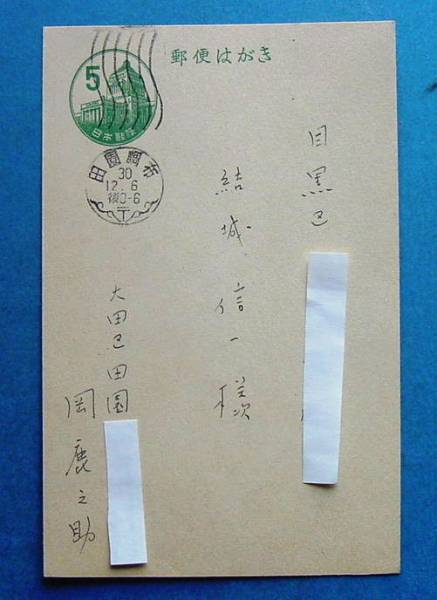 郵便はがき
5
日本郵便
田園調布
30
12.6
後0-6
目黒区
結城信一様
大田区田園
岡鹿之助